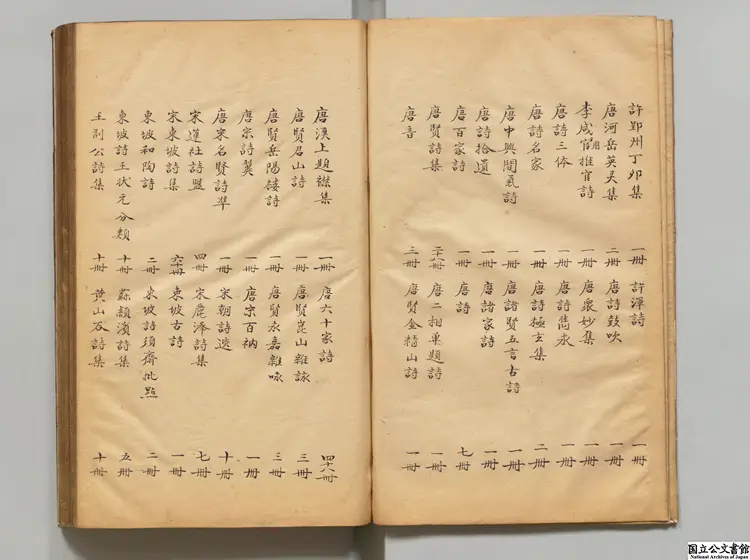 許郢州丁卯集 一冊 許渾詩 一冊
唐河岳英灵集 二冊 唐詩鼓吹 一冊
李咸用推官詩 一冊 唐衆妙集 一冊
唐詩三体 一冊 唐詩雋永 一冊
唐詩名家 一冊 唐詩極玄集 二冊
唐中興間氣詩 一冊 唐諸賢五言古詩 一冊
唐詩拾遺 一冊 唐諸家詩 一冊
唐百家詩 一冊 唐詩 七冊
唐賢詩集 二十八冊 唐二相單題詩 一冊
唐音 三冊 唐賢金精山詩 一冊
唐漢上題襟集 一冊 唐六十家詩 四十八冊
唐賢君山詩 一冊 唐賢崑山雜詠 三冊
唐賢岳陽楼詩 一冊 唐賢永嘉雜咏 三冊
唐宗詩翼 一冊 唐宗百衲 一冊
唐宋名賢詩準 一冊 宋朝詩选 十冊
宋蓮社詩盟 四冊 宋詩集 七冊
宋東坡詩集 六十冊 東坡古詩 一冊
東坡和陶詩 二冊 東坡詩須齋批點 二冊
東坡詩王状元分類 十冊 蘇潁濱詩集 五冊
王荊公詩集 十冊 黄山谷詩集 十冊
国立公文書館
National Archives of Japan